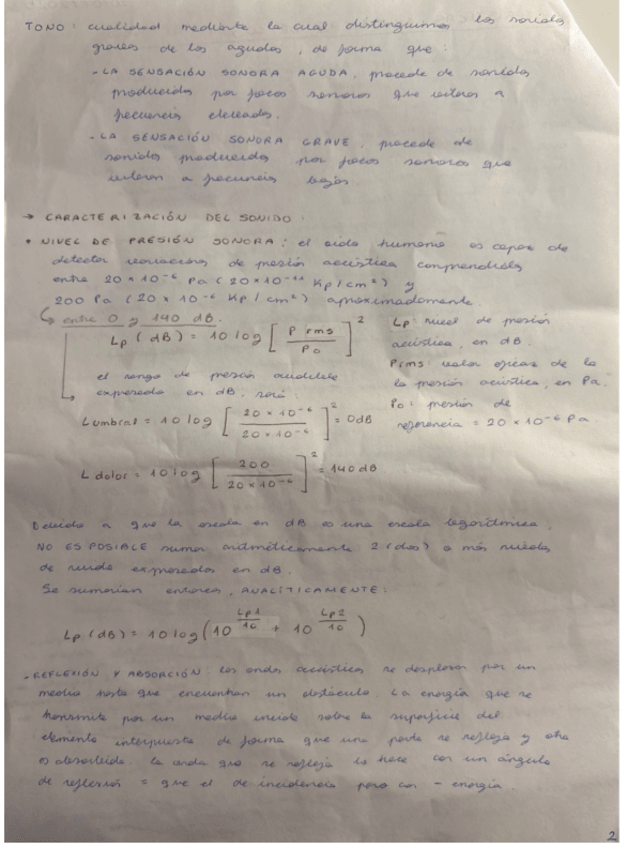 TONO: cualidad mediante la cual distinguimos los sonidos
graves de los agudos, de forma que:
- LA SENSACIÓN SONORA AGUDA, procede de sonidos
producidos por focos sonoros que vibran a
frecuencia elevadas.
- LA SENSACIÓN SONORA GRAVE, procede de
sonidos producidos por focos sonoros que
vibran a frecuencias bajas
→ CARACTERIZACIÓN DEL SONIDO:
• NIVEL DE PRESIÓN SONORA: el oido humano es capaz de
detectar variaciones de presión acústica comprendidas
entre 20 × 10⁻⁶ Pa (20 × 10⁻¹¹ Kp/cm²) y
200 Pa (20 × 10⁻⁶ Kp/cm²) aproximadamente.
entre 0 y 140 dB.
Lp (dB) = 10 log [P rms / Po]²
el rango de presión audible
expresado en dB, será:
L umbral = 10 log [20 × 10⁻⁶ / 20 × 10⁻⁶]² = 0dB
L dolor = 10 log [200 / 20 × 10⁻⁶]² = 140 dB
Lp: nivel de presión
acústica, en dB.
Prms: valor eficaz de la
la presión acústica, en Pa.
Po: presión de
referencia = 20 × 10⁻⁶ Pa
Debido a que la escala en dB es una escala logarítmica,
NO ES POSIBLE sumar aritméticamente 2 (dos) o más niveles
de ruido expresados en dB.
Se sumarían entonces, ANALÍTICAMENTE:
Lp (dB) = 10 log (10^(Lp1/10) + 10^(Lp2/10))
- REFLEXIÓN Y ABSORCIÓN: las ondas acústicas se desplazan por un
medio hasta que encuentran un obstáculo. La energía que se
transmite por un medio incide sobre la superficie del
elemento interpuesto de forma que una parte se refleja y otra
es absorbida. la onda que se refleja lo hace con un ángulo
de reflexión = que el de incidencia pero con - energía.
2